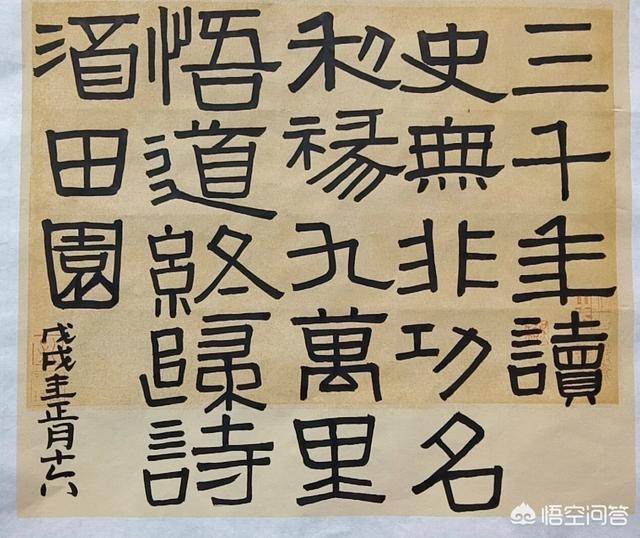 三千年讀
史無非功名
利祿九萬里
悟道終歸詩
酒田園
戊戌年正月十六
悟空问答